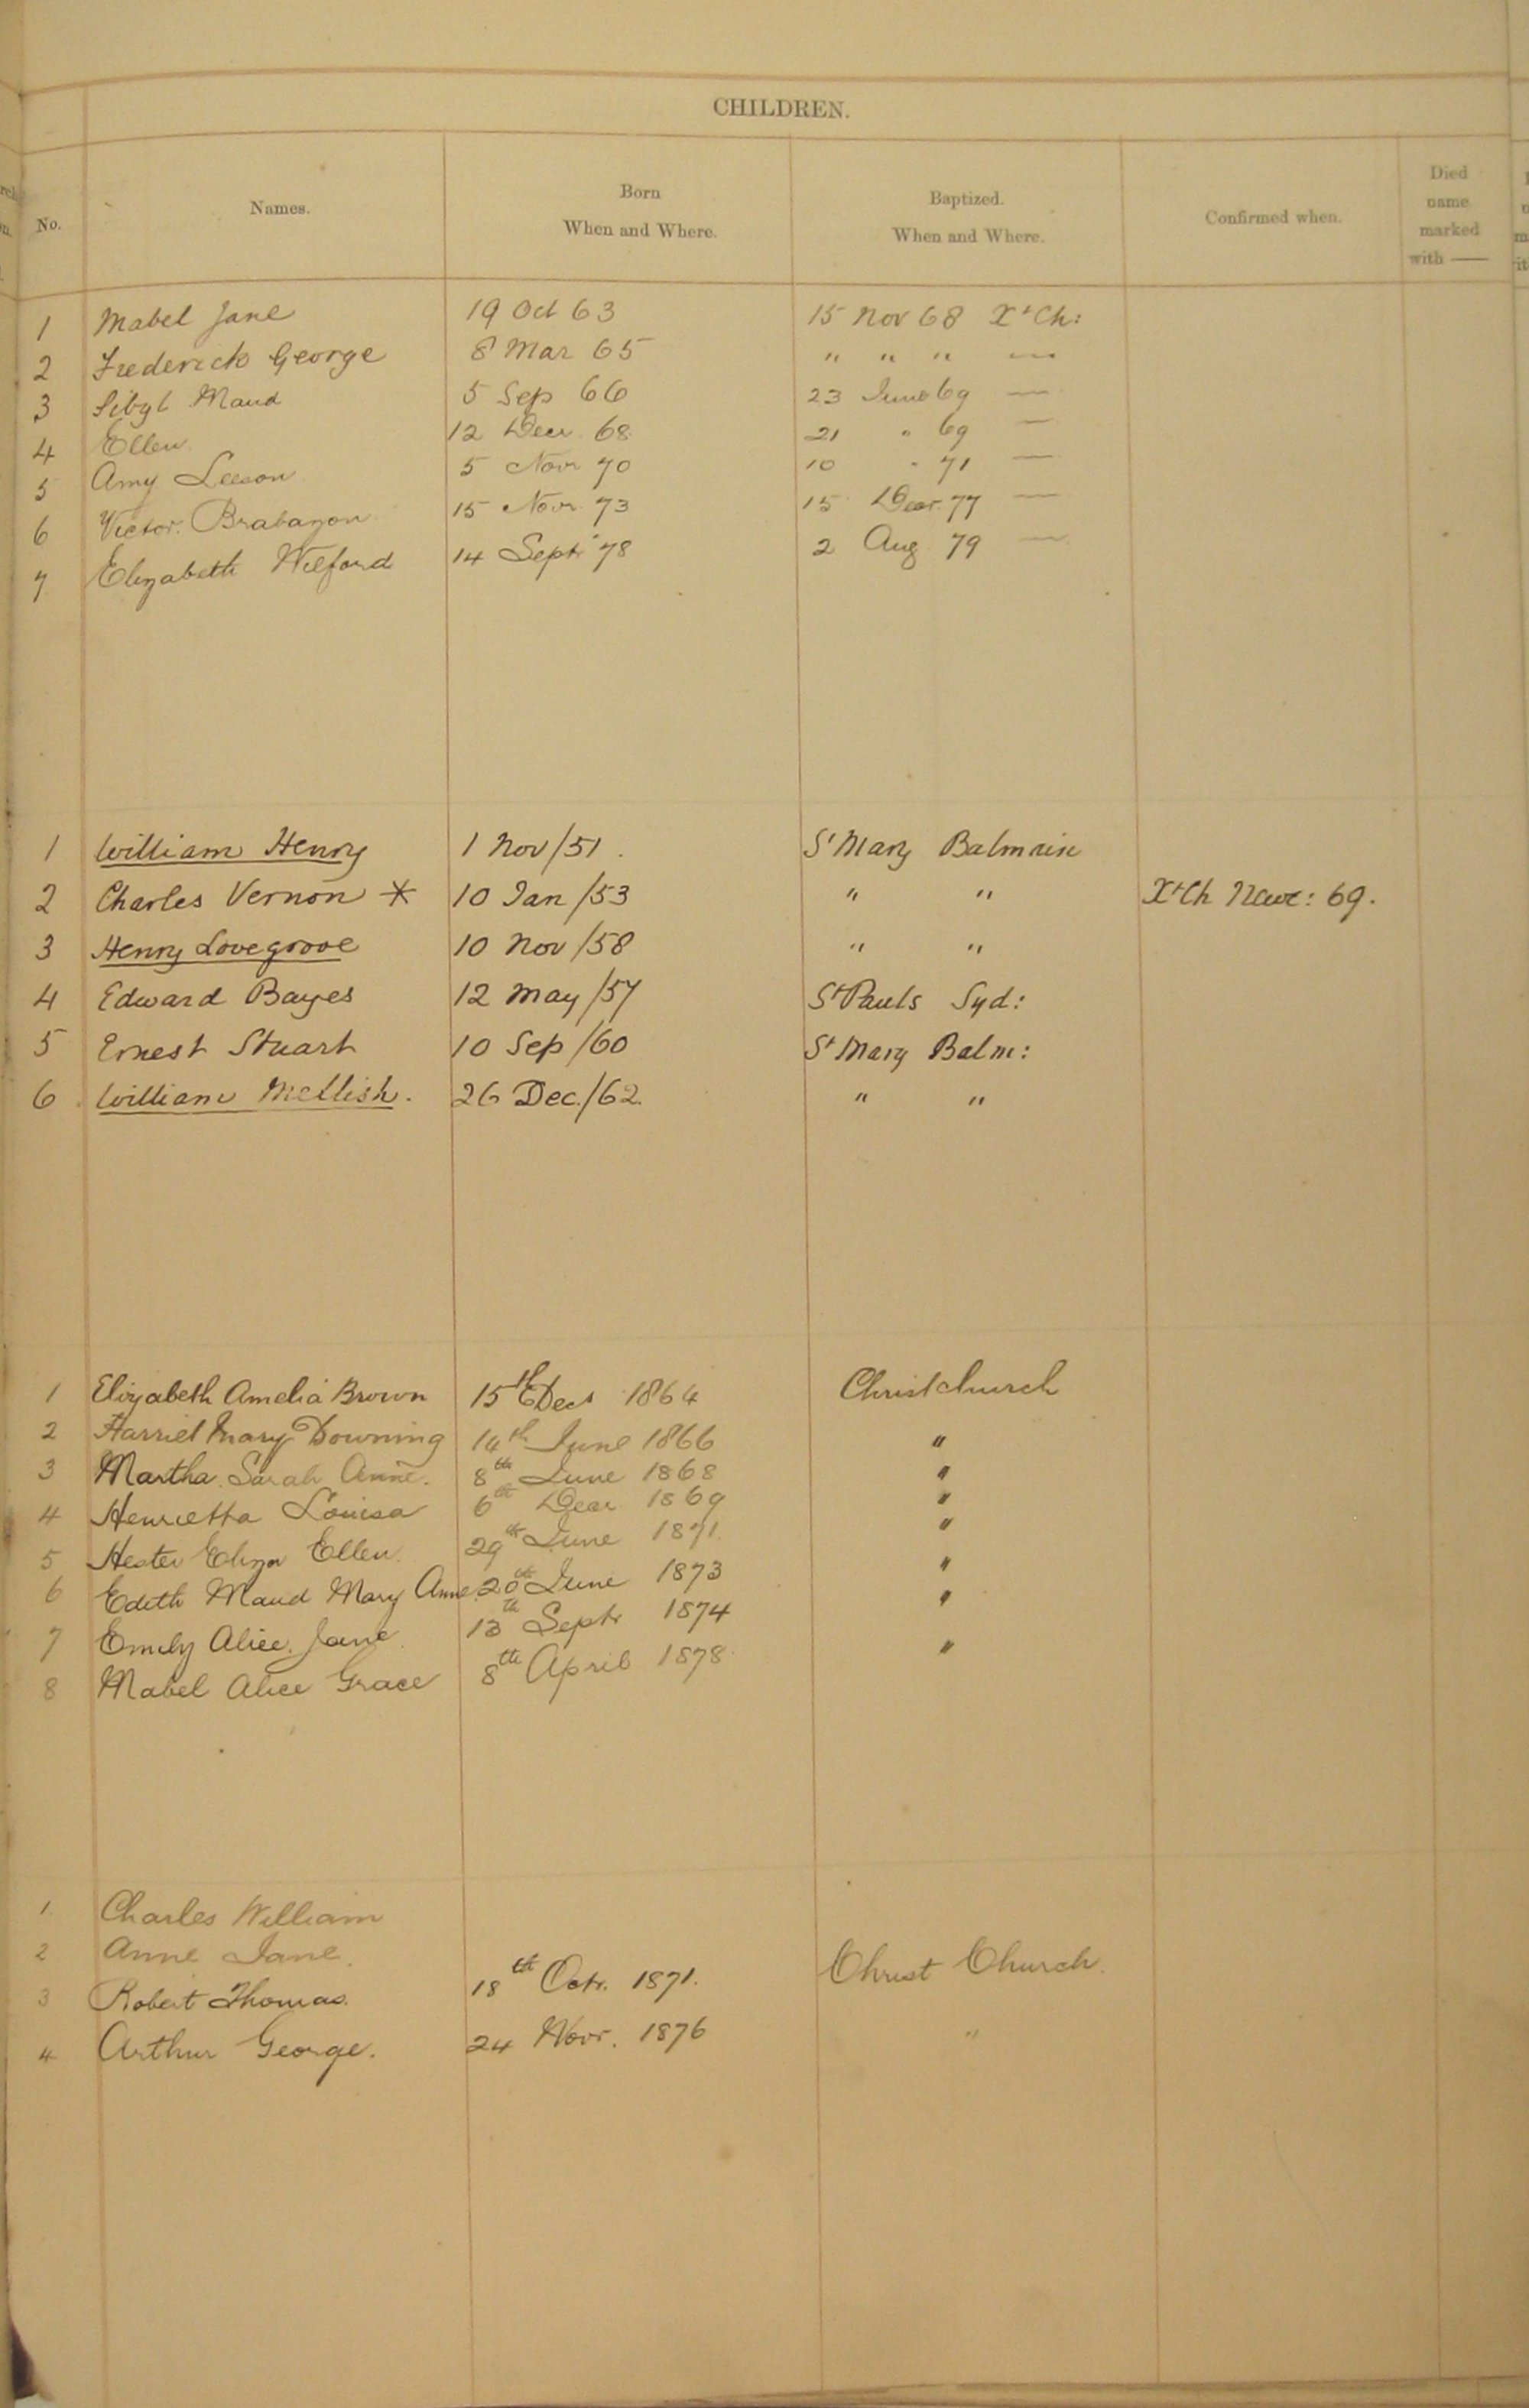 CHILDREN.
No. Names. Born When and Where. Baptized. When and Where. Confirmed when. Died name marked with —
1 Mabel Jane 19 Oct 63 15 Nov 68 Xt Ch:
2 Frederick George 8 Mar 65 " " " —
3 Sibyl Maud 5 Sep 66 23 June 69 —
4 Ellen 12 Decr. 68 21 " 69 —
5 Amy Leeson 5 Novr 70 10 " 71 —
6 Victor. Brabazon 15 Novr. 73 15 Decr. 77 —
7 Elizabeth Wilford 14 Septr 78 2 Aug. 79 —
1 William Henry 1 Nov/51. St Mary Balmain
2 Charles Vernon * 10 Jan/53 " " Xt Ch Newc: 69.
3 Henry Lovegrove 10 Nov/58 " "
4 Edward Bayes 12 May/57 St Pauls Syd:
5 Ernest Stuart 10 Sep/60 St Mary Balm:
6 William Mellish. 26 Dec./62. " "
1 Elizabeth Amelia Brown 15th Decr 1864 Christchurch
2 Harriet Mary Downing 14th June 1866 "
3 Martha Sarah Anne. 8th June 1868 "
4 Henrietta Louisa 6th Decr 1869 "
5 Hester Eliza Ellen. 29th June 1871. "
6 Edith Maud Mary Anne. 20th June 1873 "
7 Emily Alice. Jane. 13th Septr 1874 "
8 Mabel Alice Grace 8th April 1878. "
1. Charles William
2 Anne Jane.
3 Robert Thomas. 18th Octr. 1871. Christ Church.
4 Arthur George. 24 Novr. 1876 "